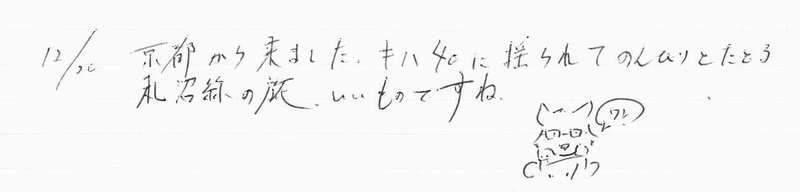 12/20 京都から来ました。キハ40に揺られてのんびりとたどる
札沼線の旅、いいものですね。